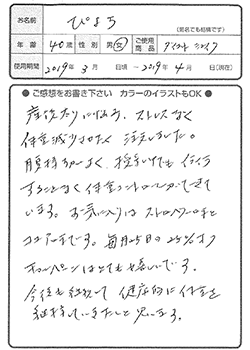 お名前 ぴよち (匿名でも結構です)
年齢 40歳 性別 男・女 ご使用商品 ダイエットシェイク
使用期間 2019年3月 日頃 ~ 2019年4月 日(現在)
● ご感想をお書き下さい カラーのイラストもOK ●
産後太りになやみ、ストレスなく
体重減少させたく 注文しました。
腹持ちがよく、授乳していても
することなく体重コントロールができて
います。お気に入りはストロベリーと
です。毎月25日の25%オフ
キャンペーンはとても嬉いです。
今後も継続して 健康的に体重を
維持していきたいと思います。